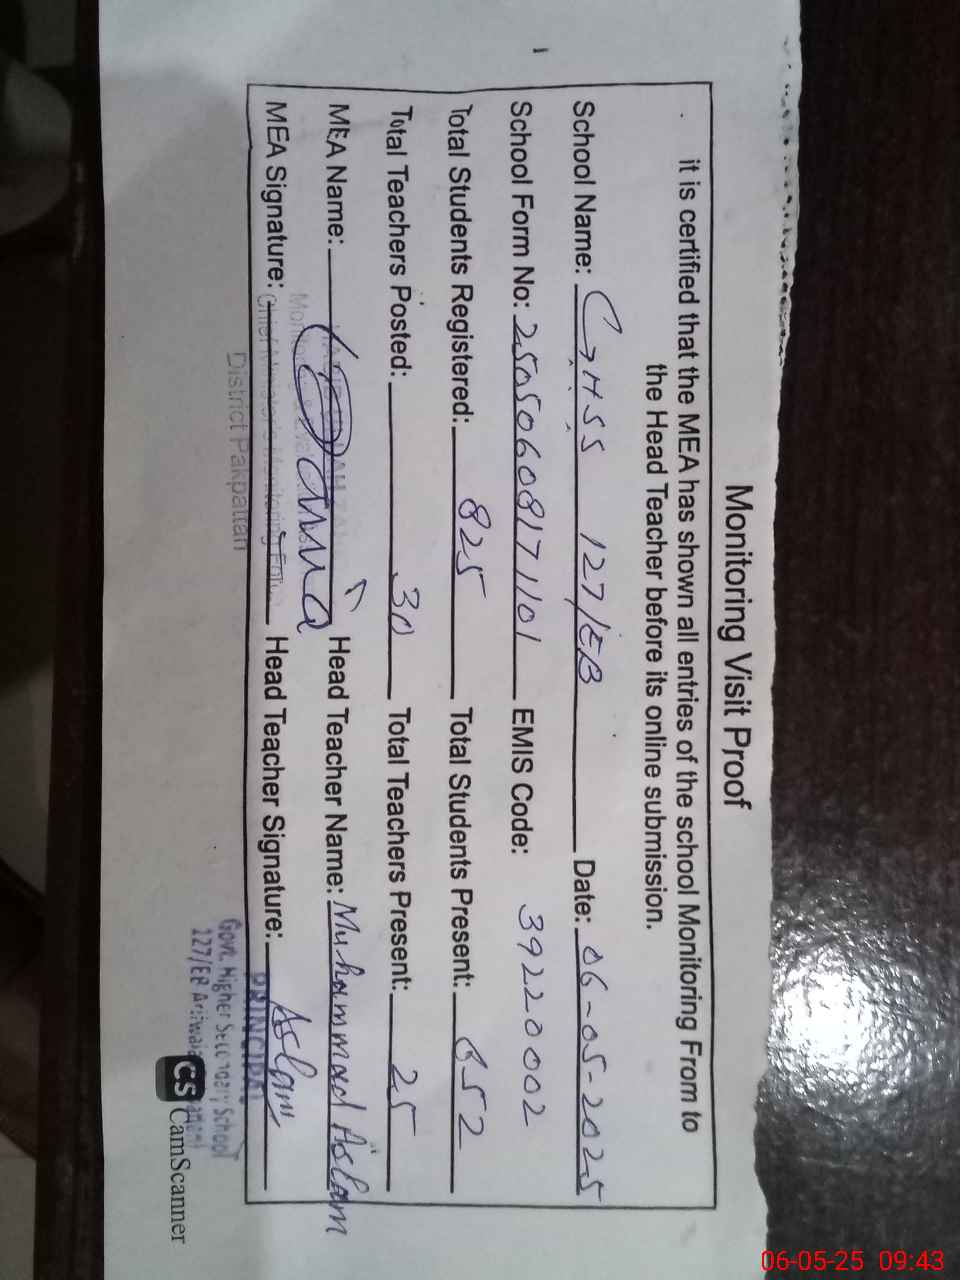 Monitoring Visit Proof
it is certified that the MEA has shown all entries of the school Monitoring From to
the Head Teacher before its online submission.
School Name: GHSS 127/EB Date: 06-05-2025
School Form No: 25050608171101 EMIS Code: 39220002
Total Students Registered: 825 Total Students Present: 652
Total Teachers Posted: 30 Total Teachers Present: 25
MEA Name: Head Teacher Name: Muhammad Aslam
MEA Signature: Head Teacher Signature: Aslam
Chief Minister's Monitoring Force
District Pakpattan
PRINCIPAL
Govt. Higher Secondary School
127/EB
CS CamScanner
06-05-25 09:43